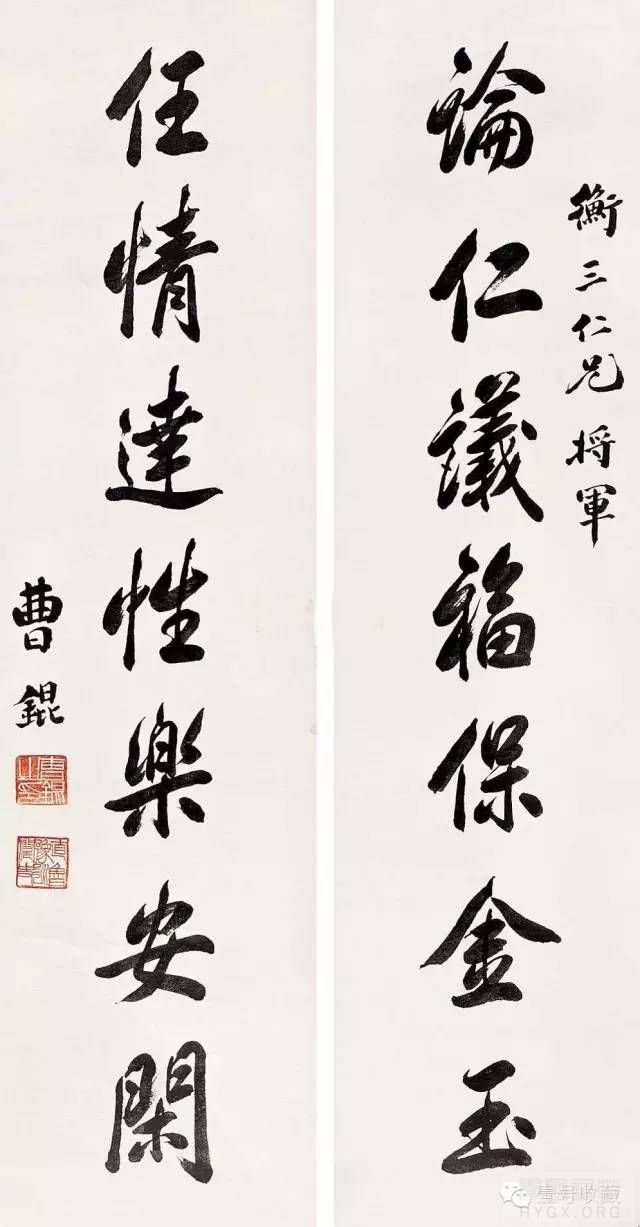 衡三仁兄将軍
論仁議福保金玉
任情達性樂安閑
曹錕
壹号收藏
HYGX.ORG